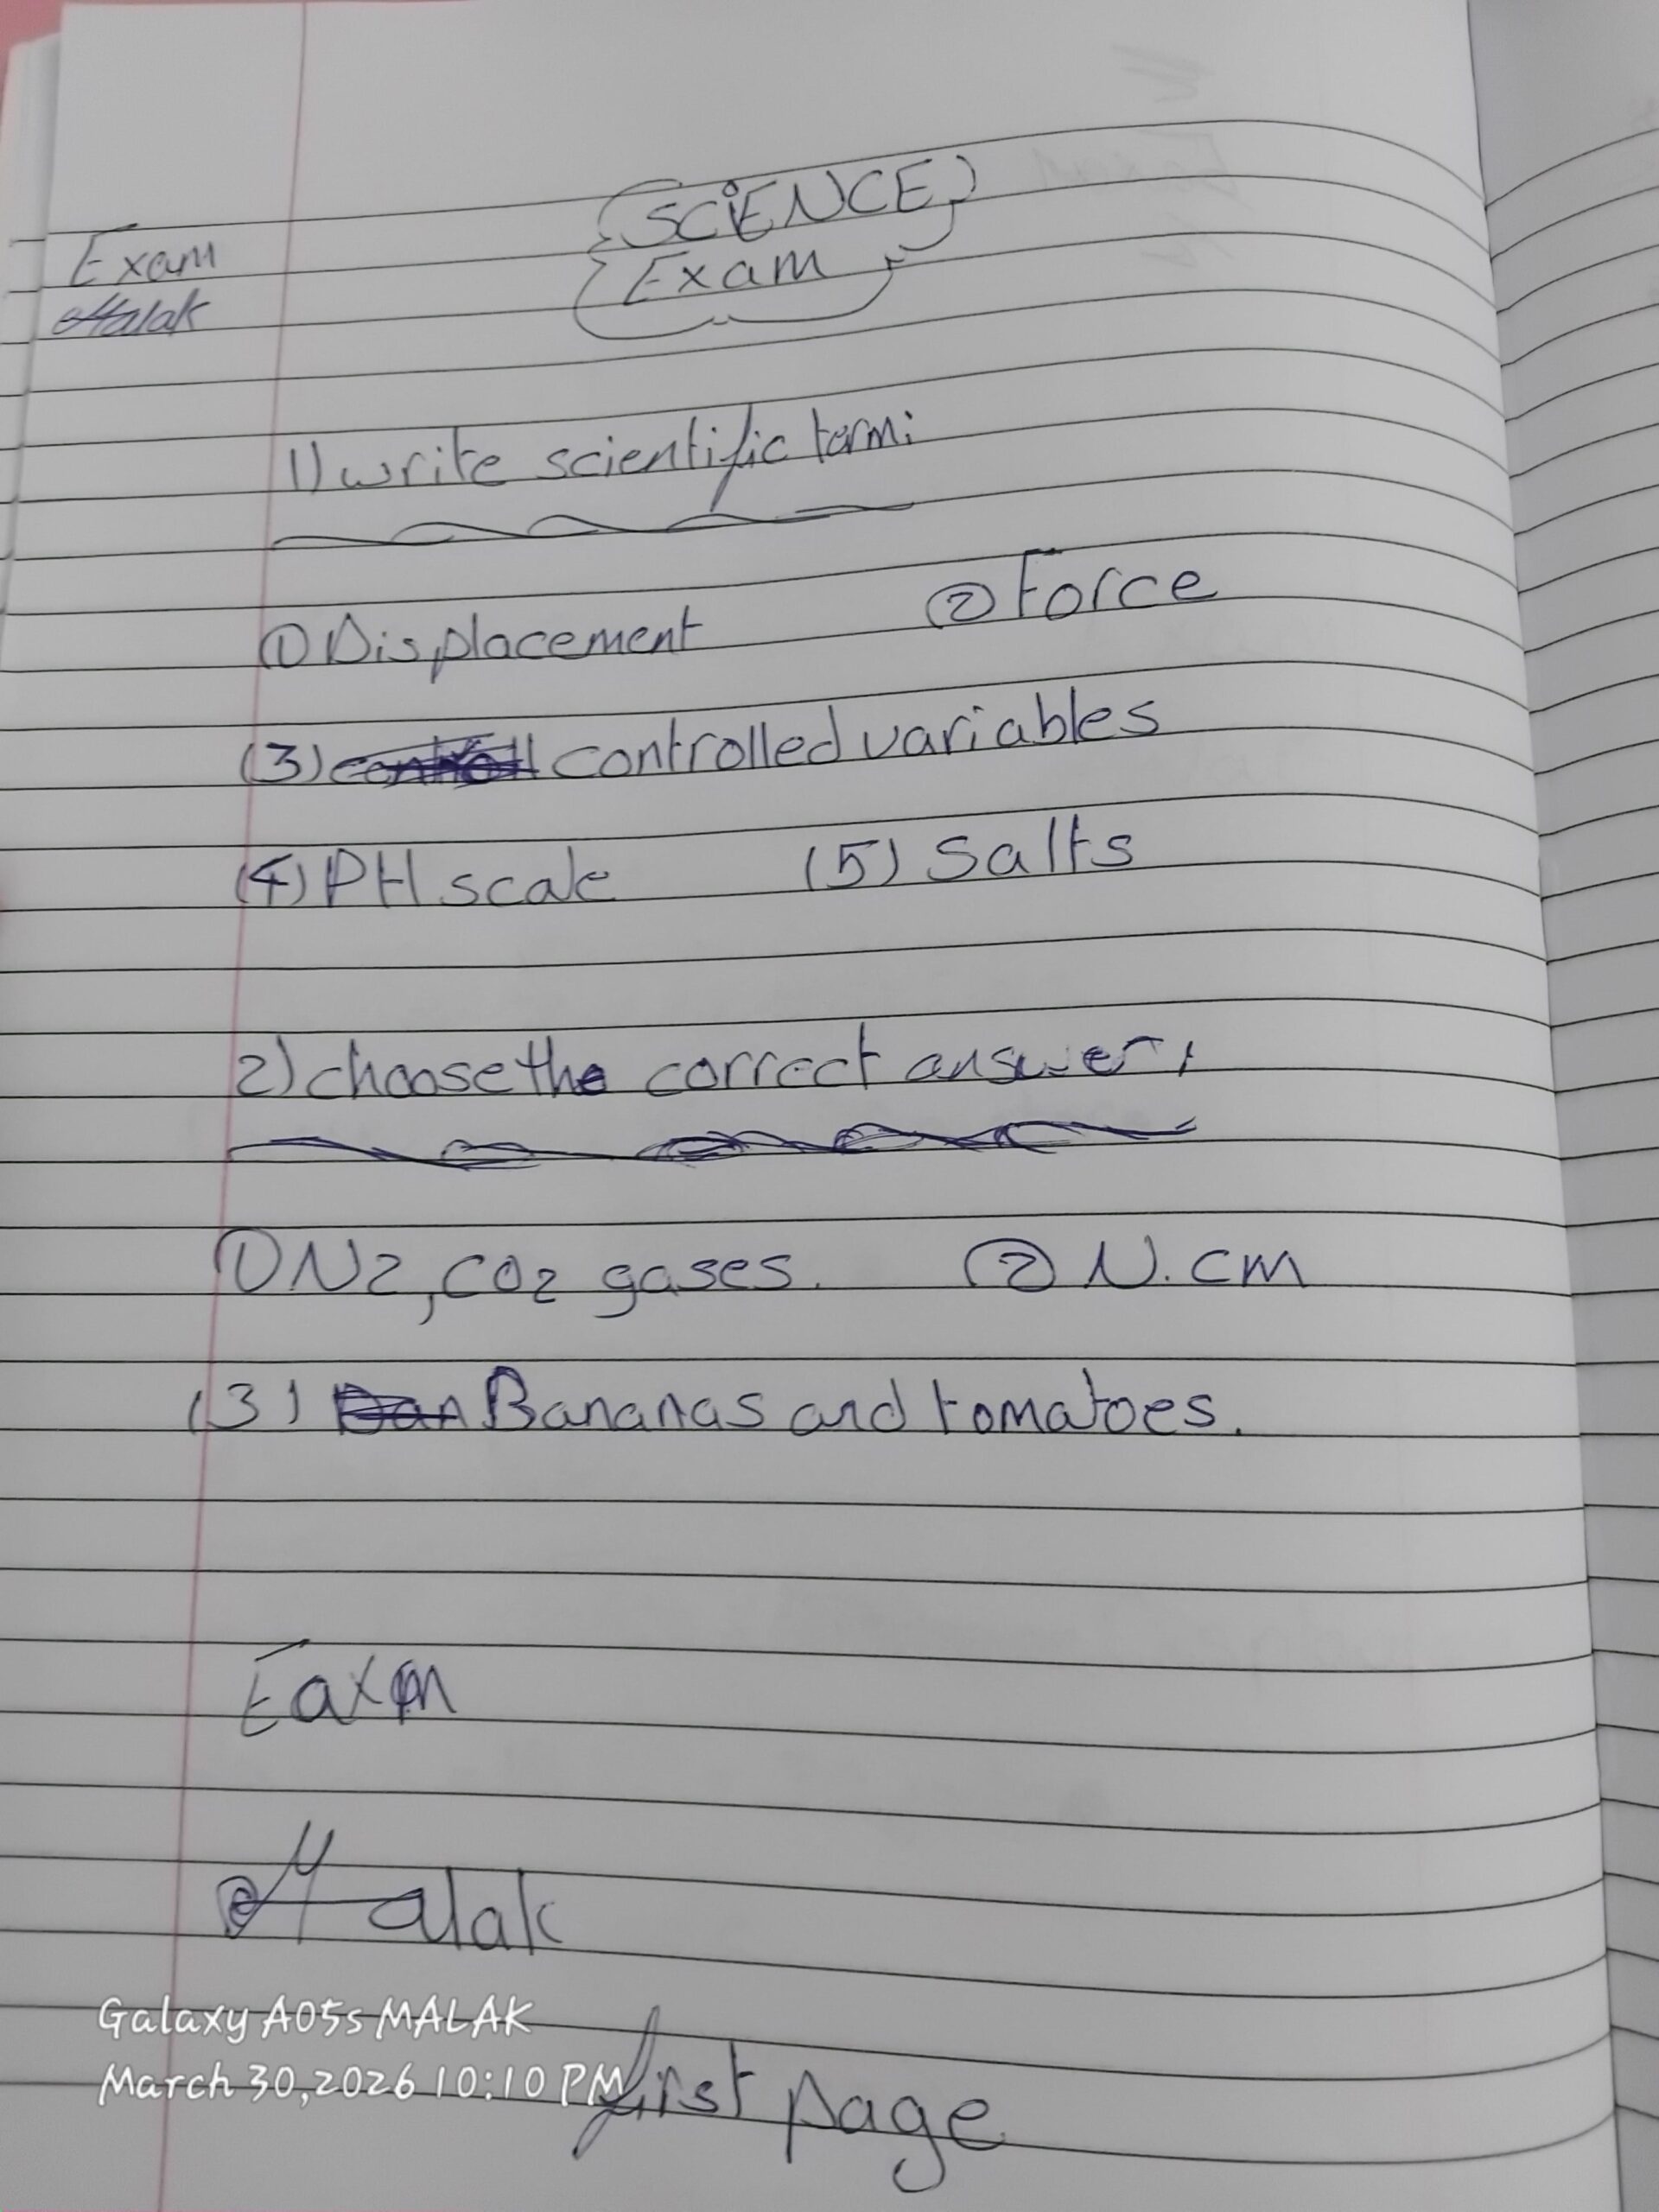 SCIENCE
Exam
Exam
Malak
1) write scientific term:
① Displacement ② Force
(3) controll controlled variables
(4) PH scale (5) Salts
2) choose the correct answer:
① N2, CO2 gases. ② N.cm
(3) Ban Bananas and tomatoes.
Eaxm
Malak
Galaxy A05s MALAK
March 30,2026 10:10 PM
first page